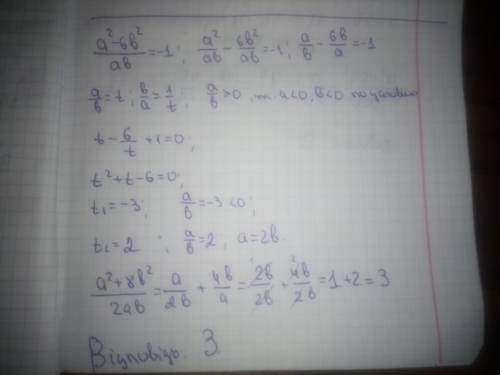 (a²-6b²)/ab = -1; a²/ab - 6b²/ab = -1; a/b - 6b/a = -1
a/b = t; b/a = 1/t; a/b > 0, т. a<0, b<0 по условию
t - 6/t + 1 = 0;
t² + t - 6 = 0;
t₁ = -3; a/b = -3 < 0;
t₂ = 2; a/b = 2, a = 2b.
(a²+8b²)/2ab = a/2b + 4b/a = 2b/2b + 4b/2b = 1 + 2 = 3
Відповідь: 3